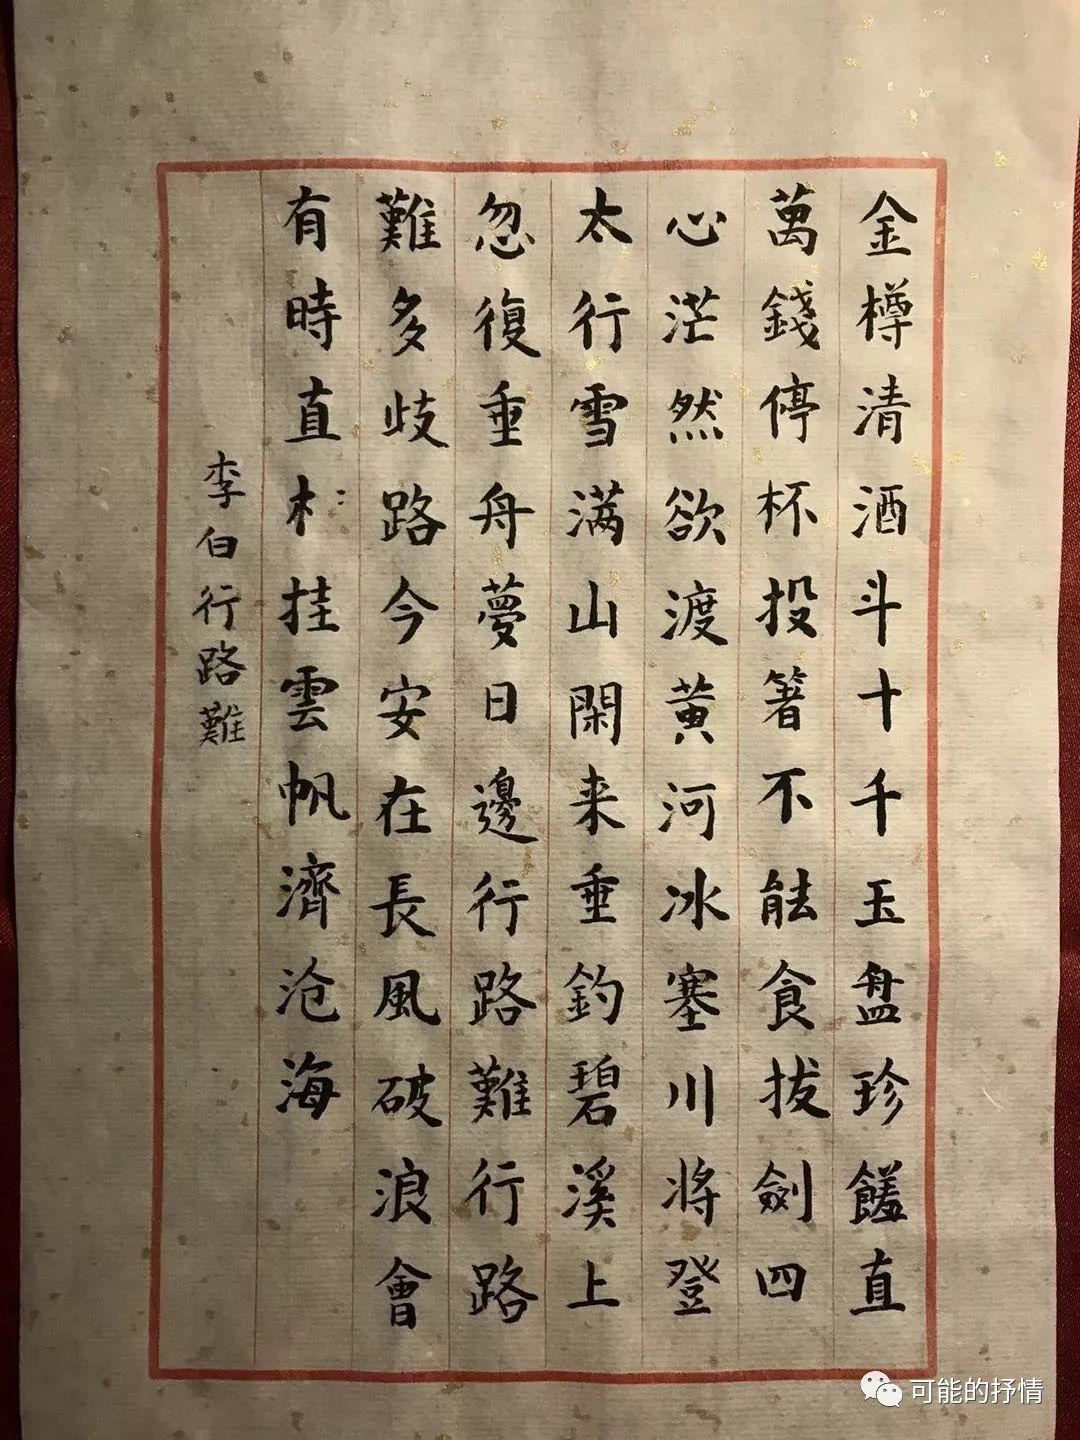 金樽清酒斗十千玉盘珍饈直
萬錢停杯投箸不能食拔劍四
心茫然欲渡黄河冰塞川将登
太行雪满山閑来垂釣碧溪上
忽復垂舟夢日邊行路難行路
難多歧路今安在長風破浪會
有時直木挂雲帆濟沧海
李白行路難
可能的抒情